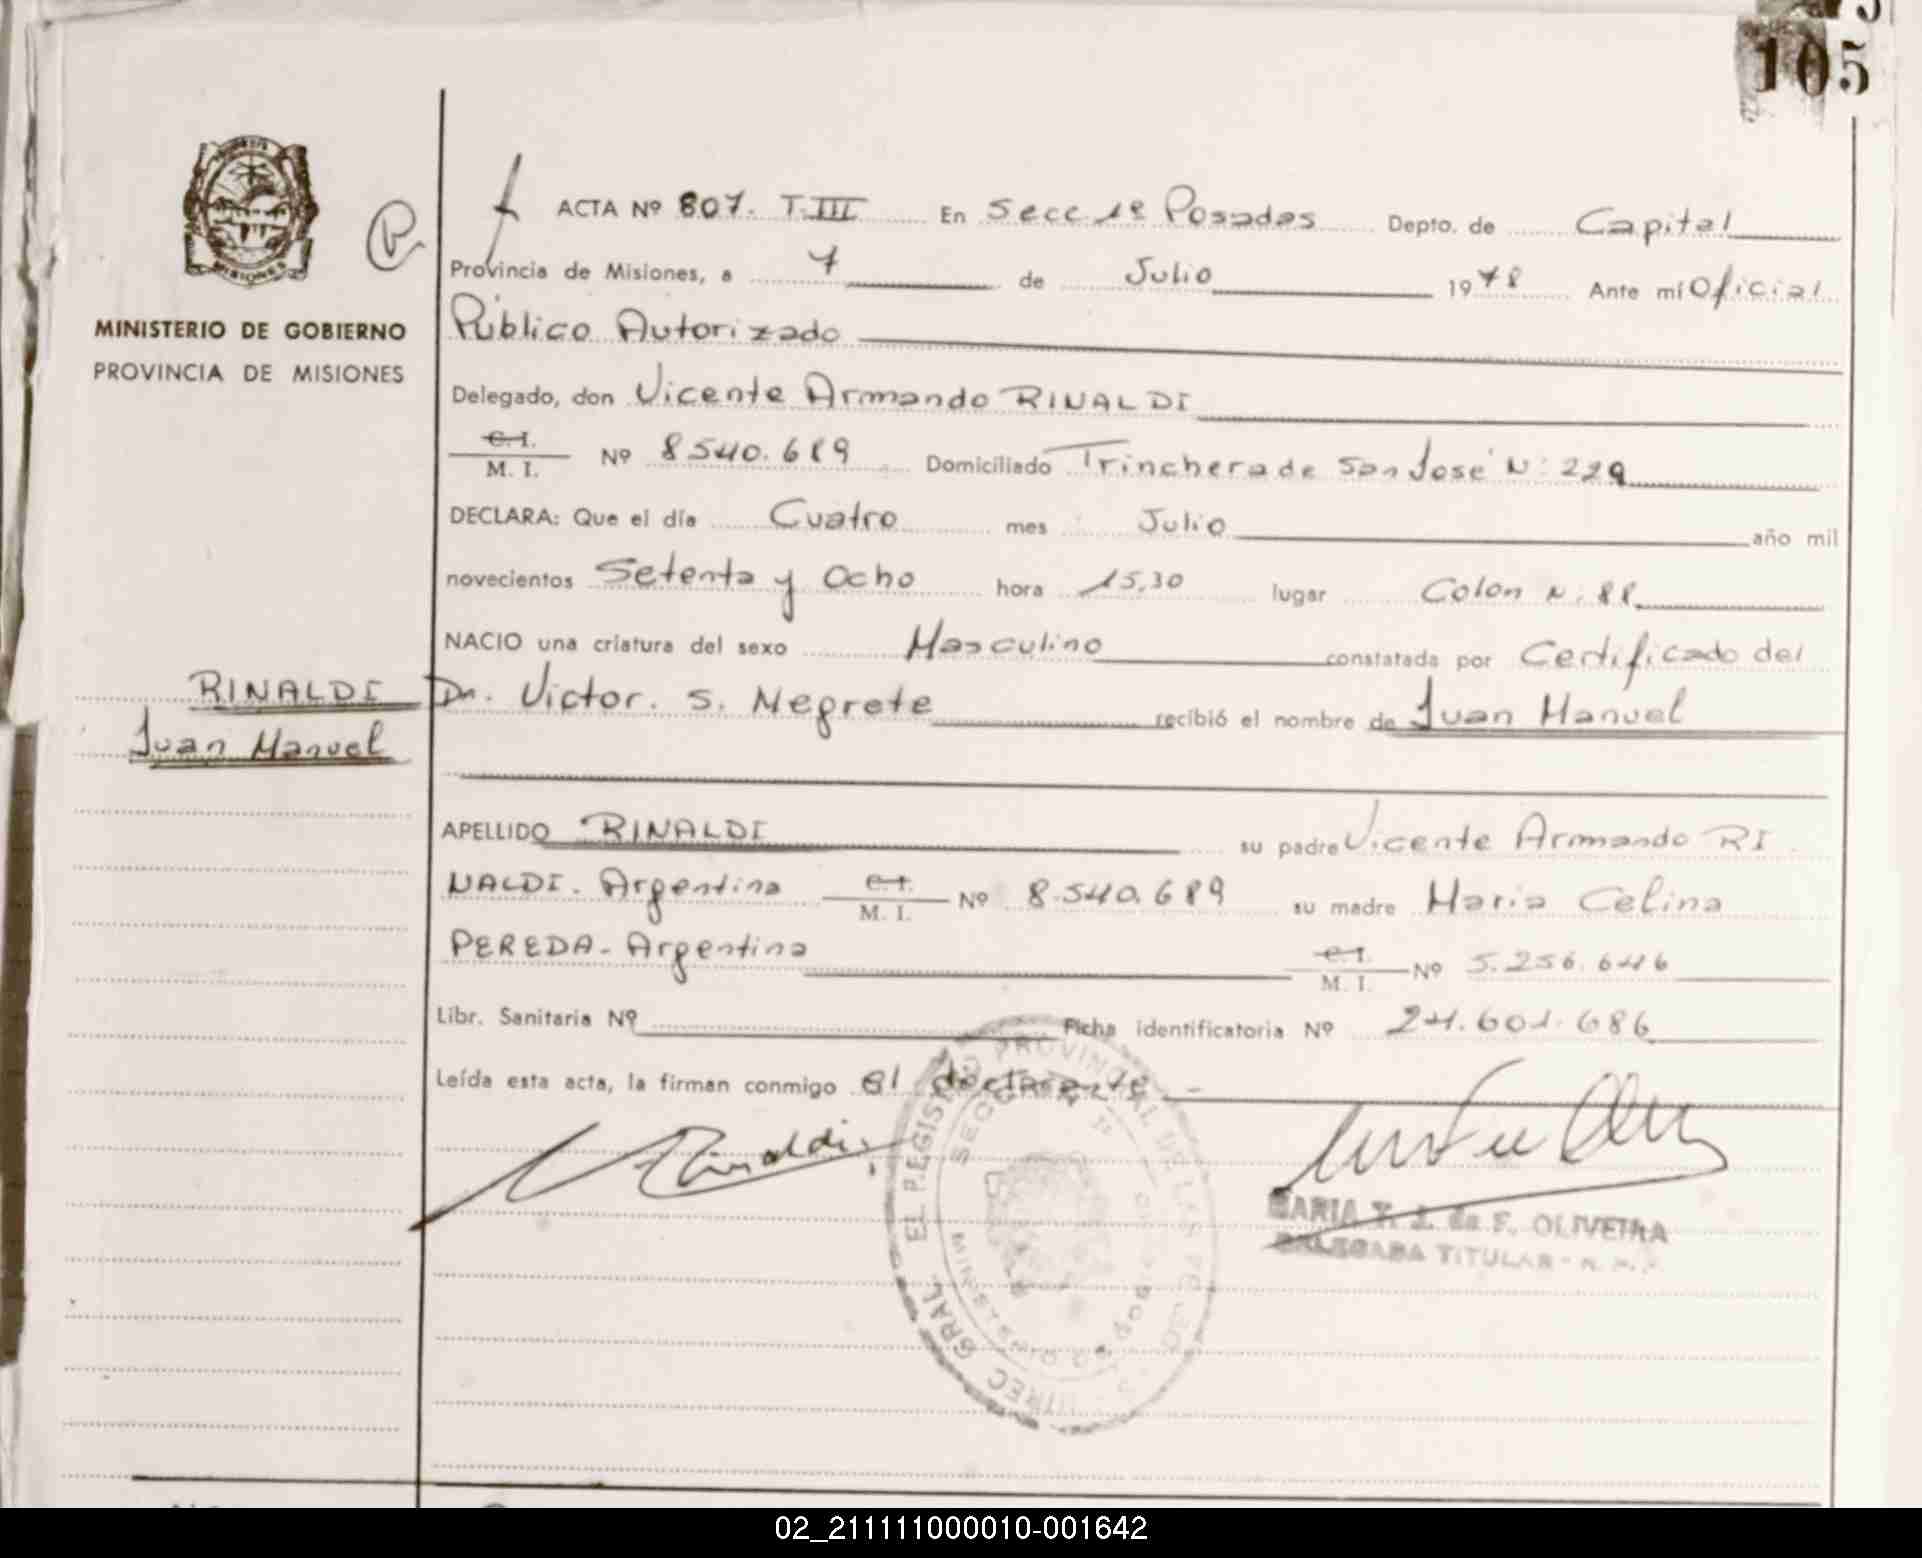 105
ACTA Nº 807. T.III En Secc 1º Posadas Depto. de Capital
Provincia de Misiones, a 7 de Julio 1978 Ante mí Oficial
Público Autorizado
MINISTERIO DE GOBIERNO
PROVINCIA DE MISIONES
Delegado, don Vicente Armando RINALDI
C.I.
M. I. Nº 8540.689 Domiciliado Trinchera de San José N: 229
DECLARA: Que el día Cuatro mes Julio año mil
novecientos Setenta y Ocho hora 15,30 lugar Colon N. 88
NACIO una criatura del sexo Masculino constatada por Certificado del
RINALDI
Juan Manuel
Dr. Victor. S. Negrete recibió el nombre de Juan Manuel
APELLIDO RINALDI su padre Vicente Armando RI
NALDI. Argentina C.I. M. I. Nº 8.540.689 su madre Maria Celina
PEREDA - Argentina C.I. M. I. Nº 5.256.646
Libr. Sanitaria Nº Ficha identificatoria Nº 24.601.686
Leída esta acta, la firman conmigo el declarante -
Rinaldi
MARIA T. J. de F. OLIVEIRA
DELEGADA TITULAR - R. P.
DIREC GRAL EL REGISTRO PROVINCIAL DE LAS PE
SECC 1ª
MISIONES
MINISTERIO DE GOB
02_211111000010-001642